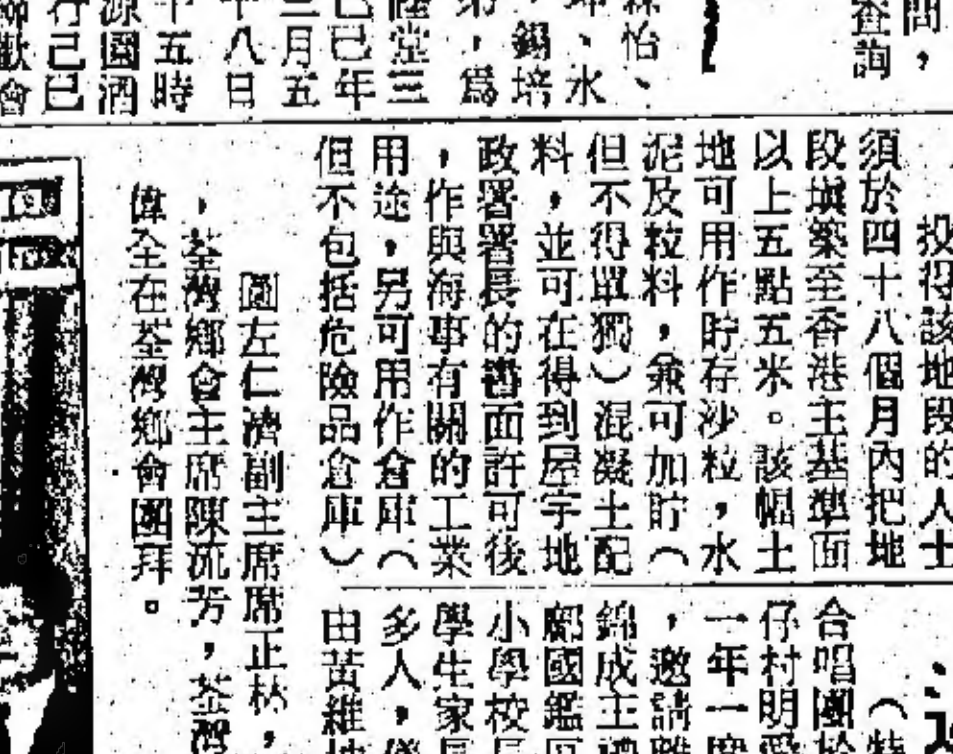 問，
查詢
怡、
、水
錫培
，為
隆堂三
己巳年
三月五
十八日
午五時
源園酒
行己巳
聯歡會
投得該地段的人士
須於四十八個月內把地
段填築至香港主基準面
以上五點五米。該幅土
地可用作貯存沙粒，水
泥及粒料，兼可加貯（
但不得單獨）混凝土配
料，並可在得到屋宇地
政署署長的書面許可後
，作與海事有關的工業
用途，另可用作倉庫（
但不包括危險品倉庫）
圖左仁濟副主席席正林，
，荃灣鄉會主席陳流芳，荃灣
偉全在荃灣鄉會團拜。
（
合唱團於
仔村明愛
一年一度
，邀請離
錦成主禮
鄺國鑑
小學校長
學生家長
多人，儀
由黃維